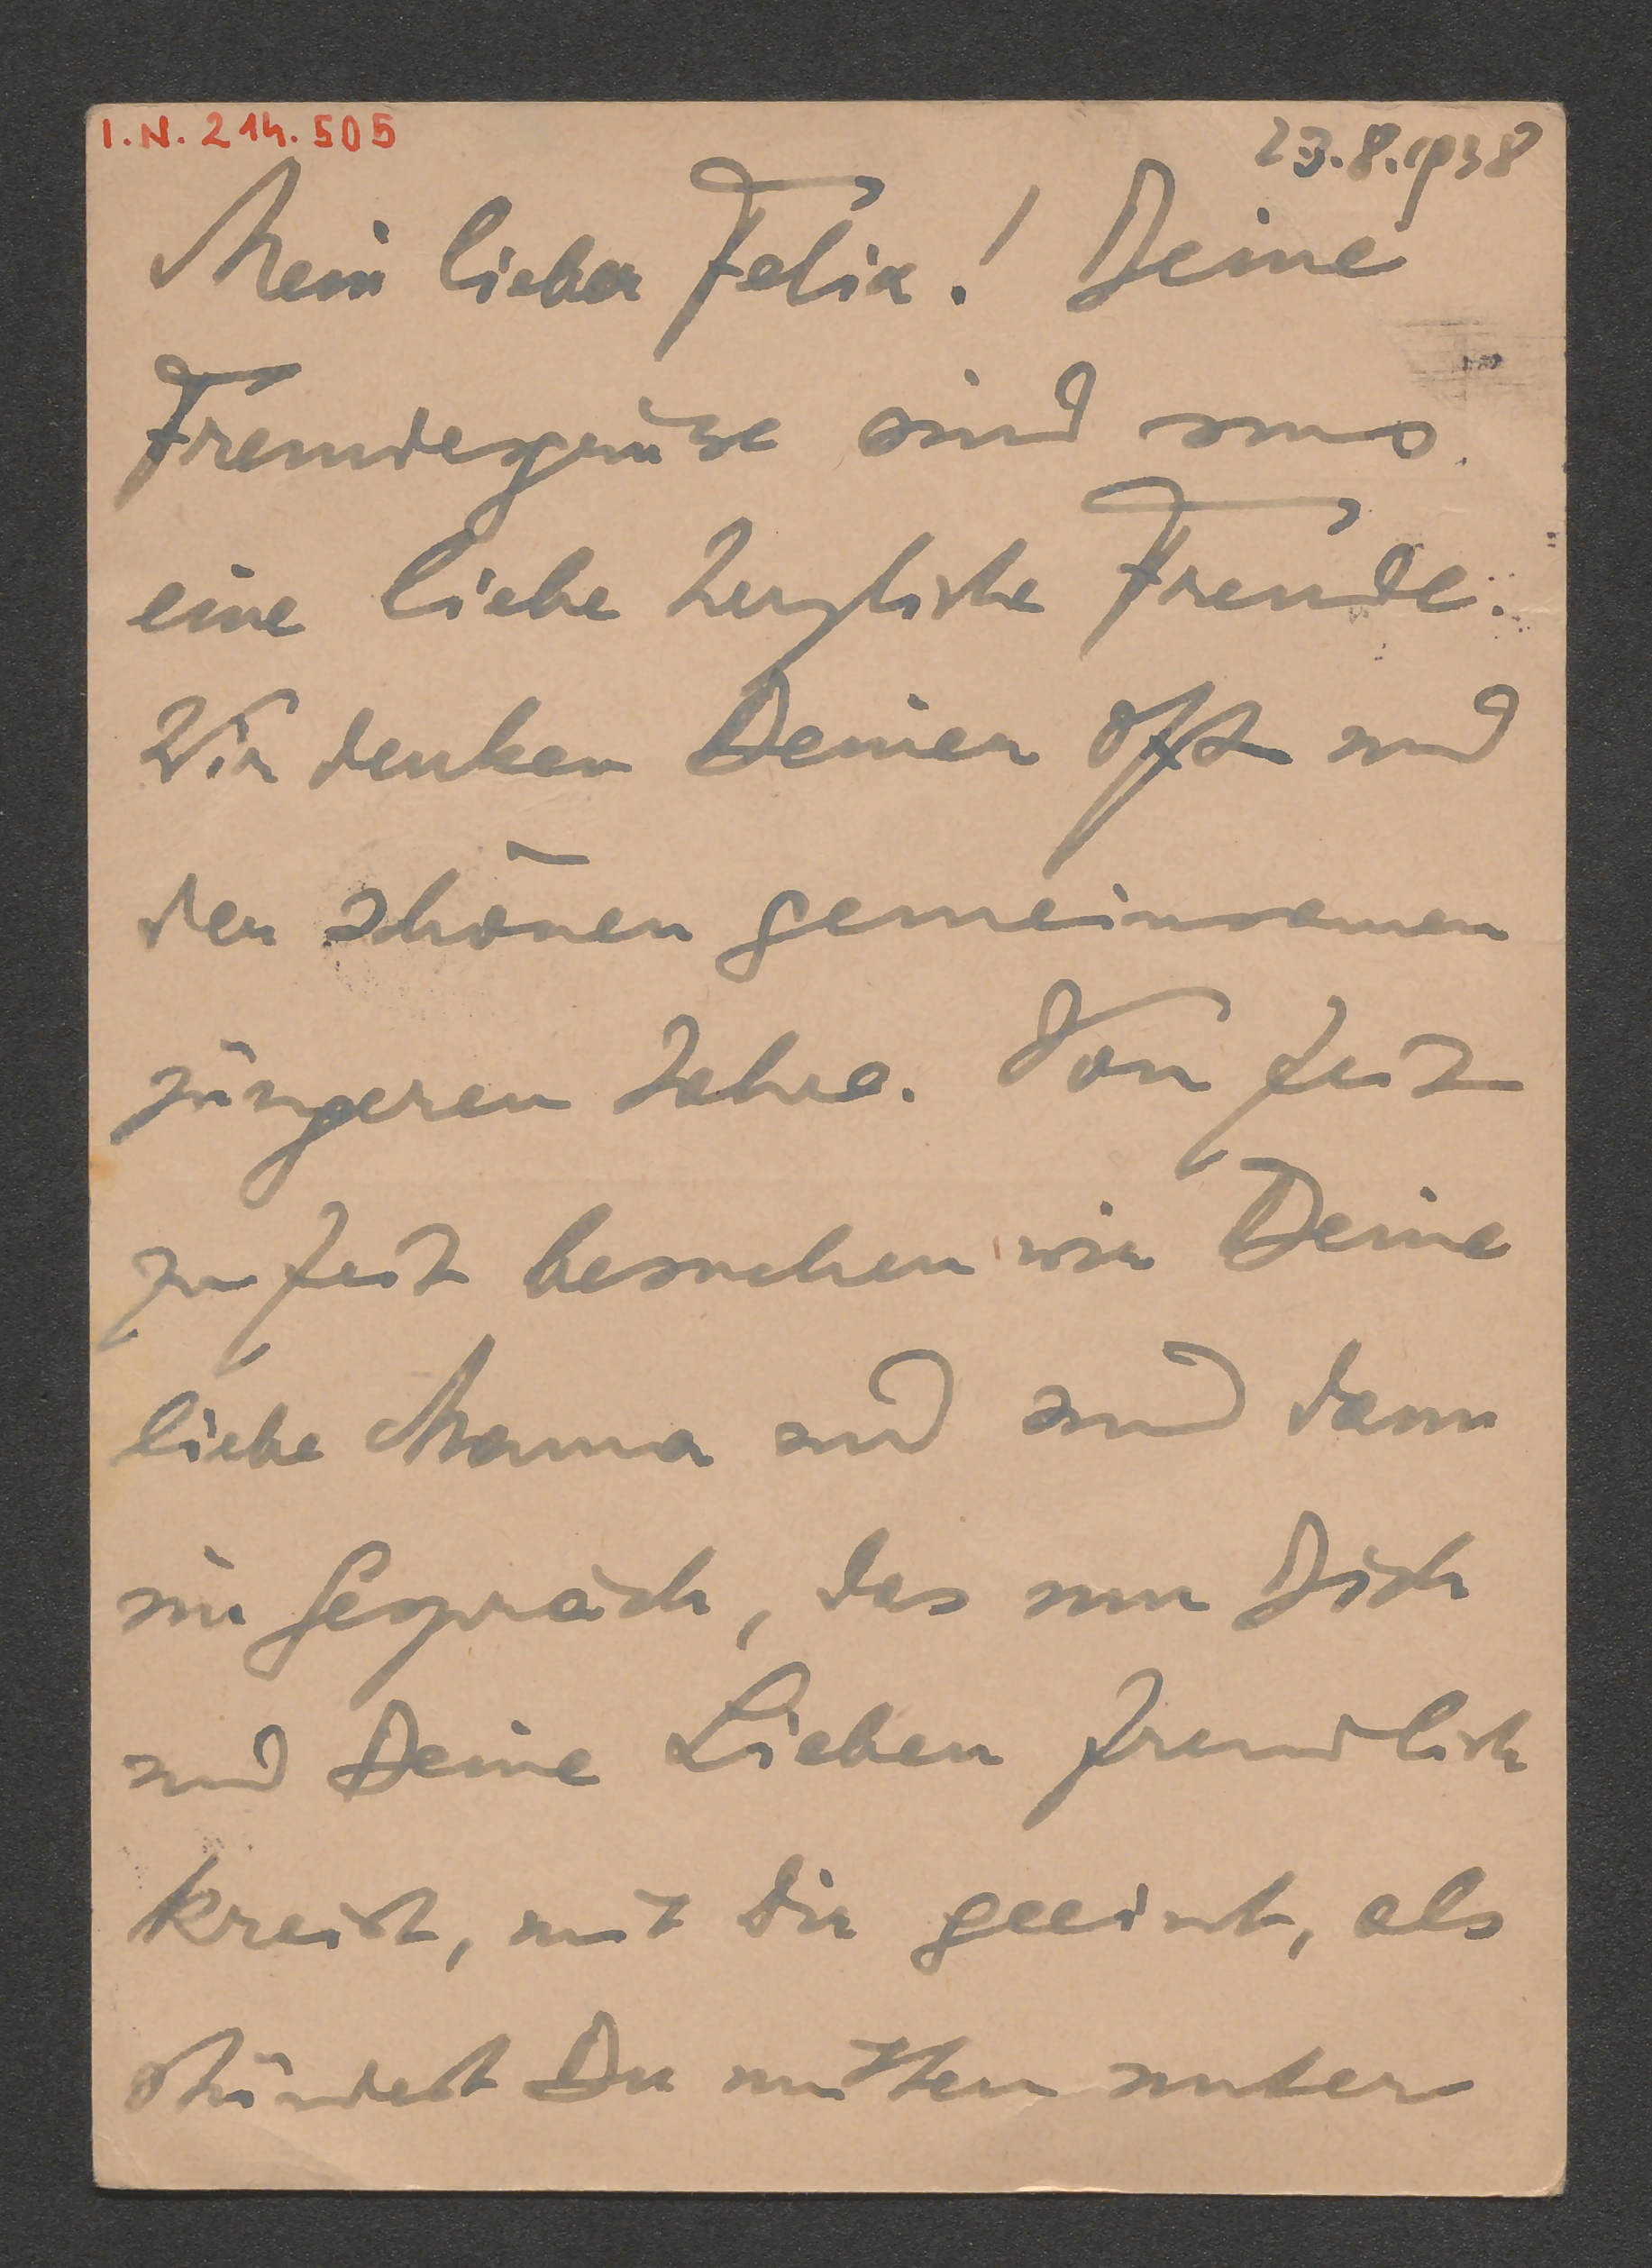 I.N. 214.505
23.8.1938
Mein lieber Felix! Deine
Freundesgrüsse sind uns
eine liebe herzliche Freude.
Wir denken Deiner oft und
der schönen gemeinsamen
jüngeren Jahre. Von Zeit
zu Zeit besuchen wir Deine
liebe Mama und sind dann
im Gespräch, das um Dich
und Deine Lieben freundlich
kreist, mit dir geeint, als
stündest Du mitten unter